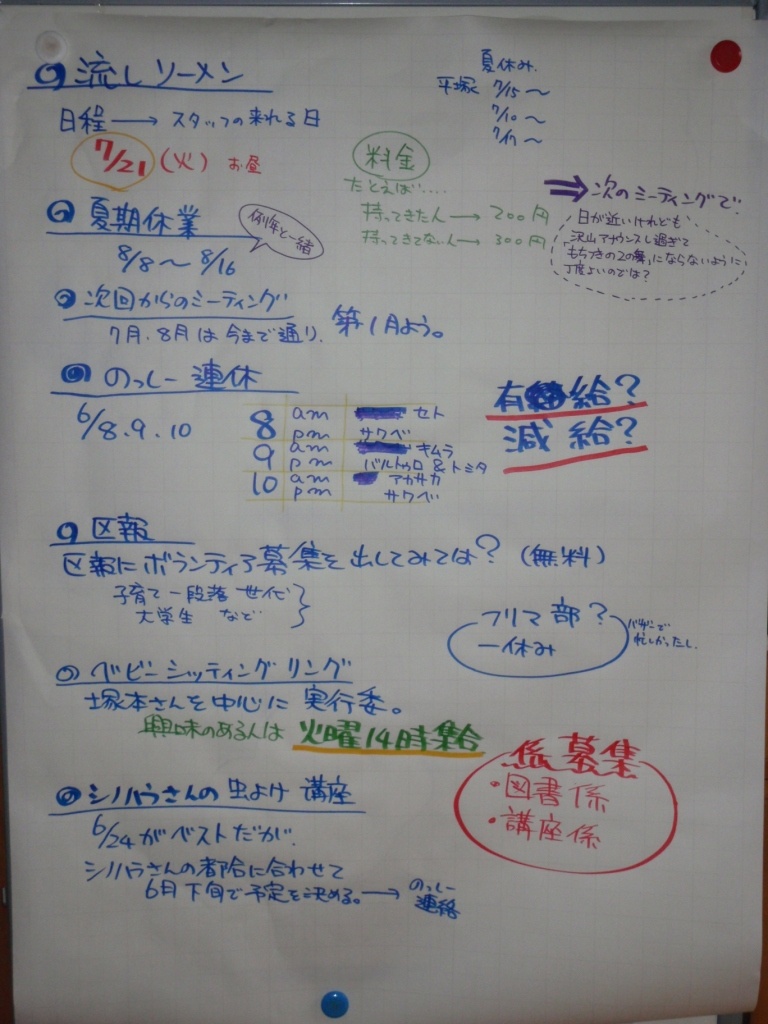 流しソーメン
夏休み.
平塚 7/15〜
7/10〜
7/17〜
日程→スタッフの来れる日
7/21(火) お昼
料金
たとえば....
持ってきた人→200円
持ってきてない人→300円
⇒次のミーティングで!
日が近いけれども
沢山アナウンスし過ぎて
もちつきの2の舞」にならないように
丁度よいのでは?
夏期休業
例年と一緒
8/8〜8/16
次回からのミーティング
7月.8月は今まで通り. 第1月よう。
のっしー連休
6/8.9.10
8 am セト
pm サクベ
9 am キムラ
pm バルトゥロ&トミタ
10 am アカサカ
pm サクベ
有給?
減給?
区報
区報にボランティア募集を出してみては?(無料)
子育て一段落世代
大学生 など
フリマ部?
一休み
バザーで
忙しかったし.
ベビーシッティングリング
塚本さんを中心に実行委。
興味のある人は 火曜14時集合
係募集
・図書係
・講座係
シノハラさんの虫よけ講座
6/24がベストだが.
シノハラさんの都合に合わせて
6月下旬で予定を決める。→のっしー
連絡